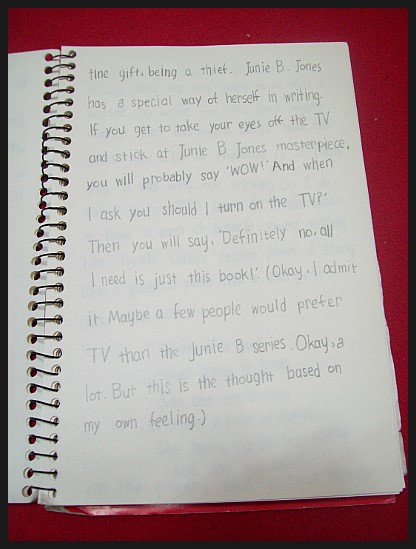 tine gift, being a thief. Junie B. Jones
has a special way of herself in writing.
If you get to take your eyes off the TV
and stick at Junie B Jones masterpiece,
you will probably say 'WOW!' And when
I ask you should I turn on the TV?'
Then you will say, 'Definitely no, all
I need is just this book!' (Okay, I admit
it. Maybe a few people would prefer
TV than the Junie B series. Okay, a
lot. But this is the thought based on
my own feeling.)